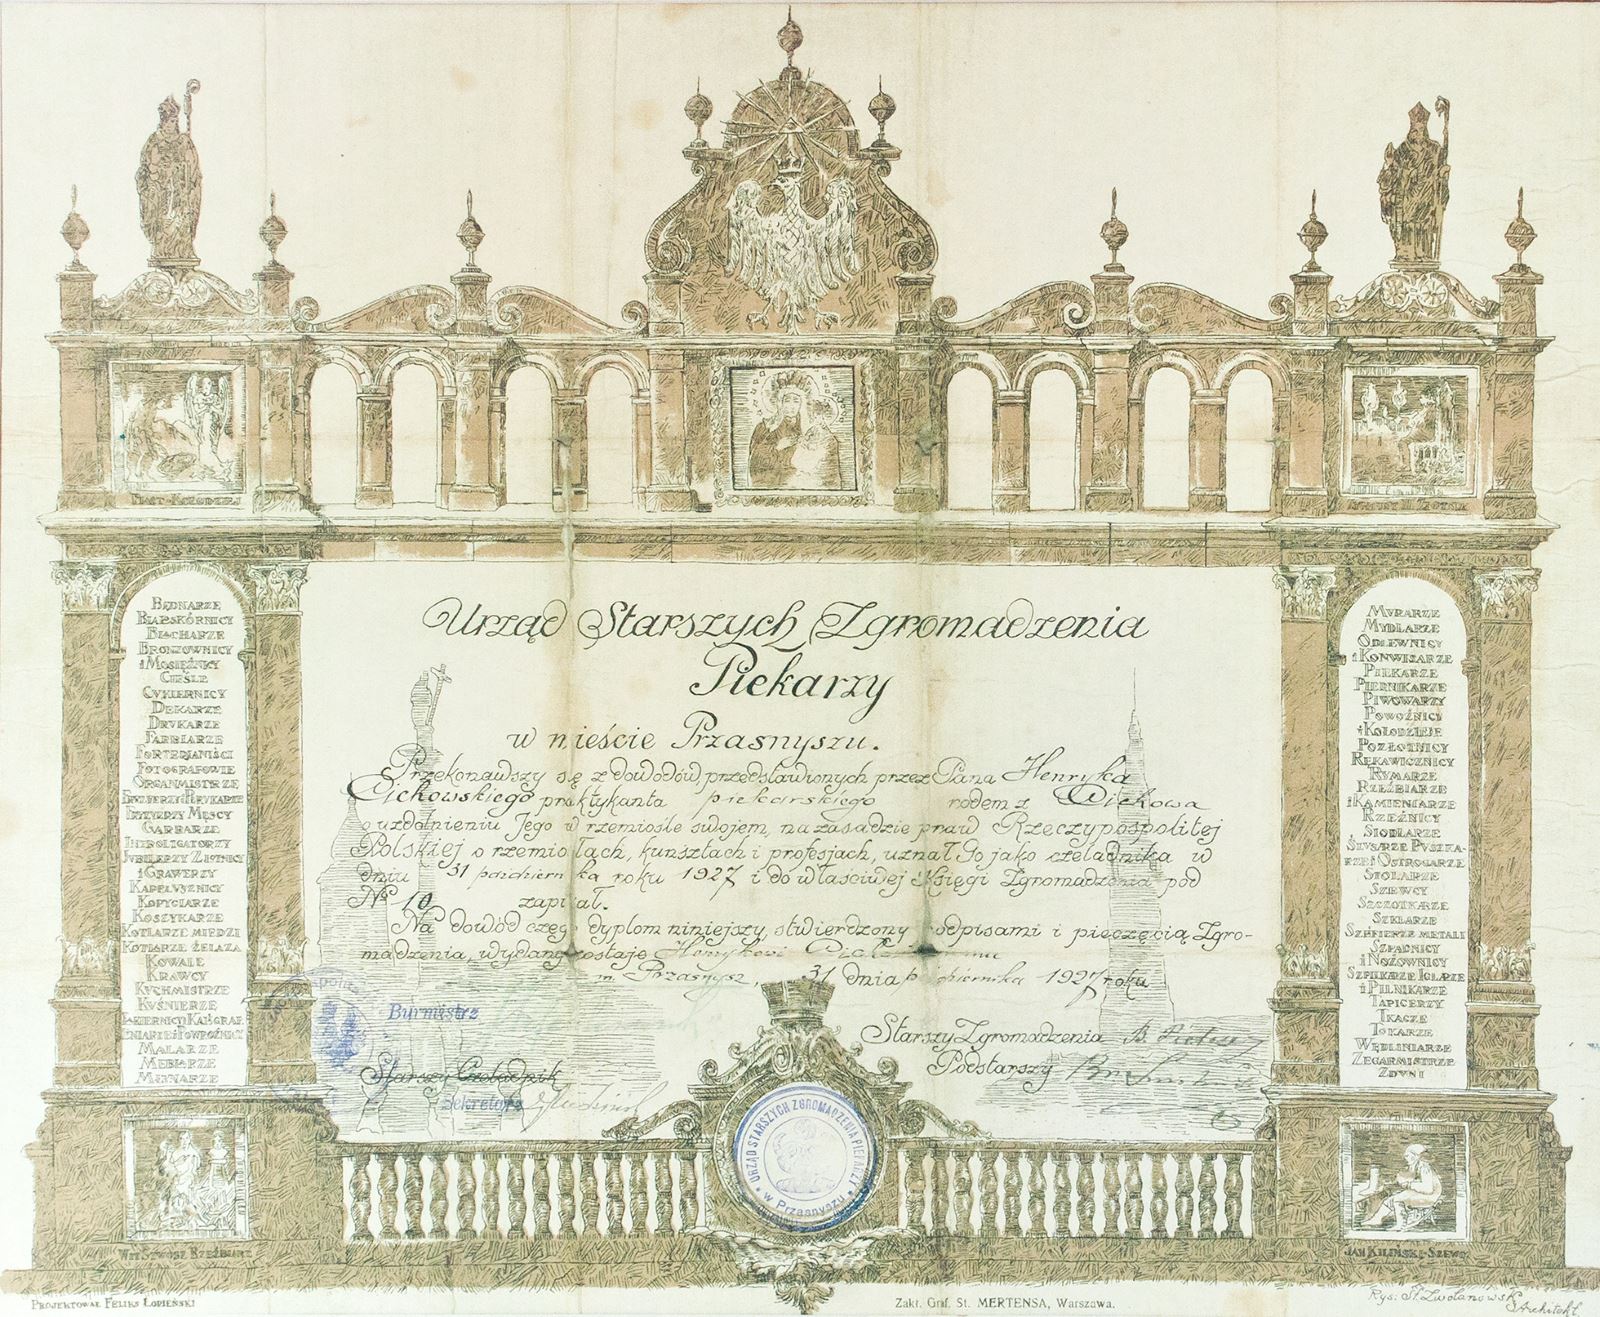 Piast-Kołodziej
Zygmunt III Złotnik
Urząd Starszych Zgromadzenia
Piekarzy
w mieście Przasnyszu.
Przekonawszy się z dowodów przedstawionych przez Pana Henryka
praktykanta piekarskiego rodem z
o uzdolnieniu Jego w rzemiośle swojem, na zasadzie praw Rzeczypospolitej
Polskiej o rzemiosłach, kunsztach i profesjach, uznał Go jako czeladnika w
dniu 31 października roku 1927 i do właściwej Księgi Zgromadzenia pod
No 10 zapisał.
Na dowód czego dyplom niniejszy, stwierdzony podpisami i pieczęcią Zgro-
madzenia, wydany zostaje Henrykowi
m. Przasnysz, 31 dnia października 1927 roku
Burmistrz
Starszy Zgromadzenia
Podstarszy
Starszy Czeladnik
Sekretarz
Bednarze
Białoskórnicy
Blacharze
Bronzownicy
i Mosiężnicy
Cieśle
Cukiernicy
Dekarze
Drukarze
Farbiarze
Fortepjaniści
Fotografowie
Organmistrze
Fryzjerzy i Perukarze
Fryzjerzy Męscy
Garbarze
Introligatorzy
Jubilerzy Złotnicy
i Grawerzy
Kapelusznicy
Kopyciarze
Koszykarze
Kotlarze miedzi
Kotlarze żelaza
Kowale
Krawcy
Kuchmistrze
Kuśnierze
Lakiernicy Kaligraf.
Malarze
Meblarze
Młynarze
Murarze
Mydlarze
Odlewnicy
i Konwisarze
Piekarze
Piernikarze
Piwowarzy
Powoźnicy
i Kołodzieje
Pozłotnicy
Rękawicznicy
Rymarze
Rzeźbiarze
i Kamieniarze
Rzeźnicy
Siodlarze
Ślusarze Puszka-
rze i Ostrogarze
Stolarze
Szewcy
Szczotkarze
Szklarze
Szlifierze metali
Szpadnicy
i Nożownicy
Szpilkarze Iglarze
i Pilnikarze
Tapicerzy
Tkacze
Tokarze
Wędliniarze
Zegarmistrze
Zduni
URZĄD STARSZYCH ZGROMADZENIA PIEKARZY
w Przasnyszu
Wit Stwosz Rzeźbiarz
Jan Kiliński-Szewc
Projektował Feliks Łopieński
Zakł. Graf. St. MERTENSA, Warszawa.
Rys: St. Zwolanowski
Architekt.